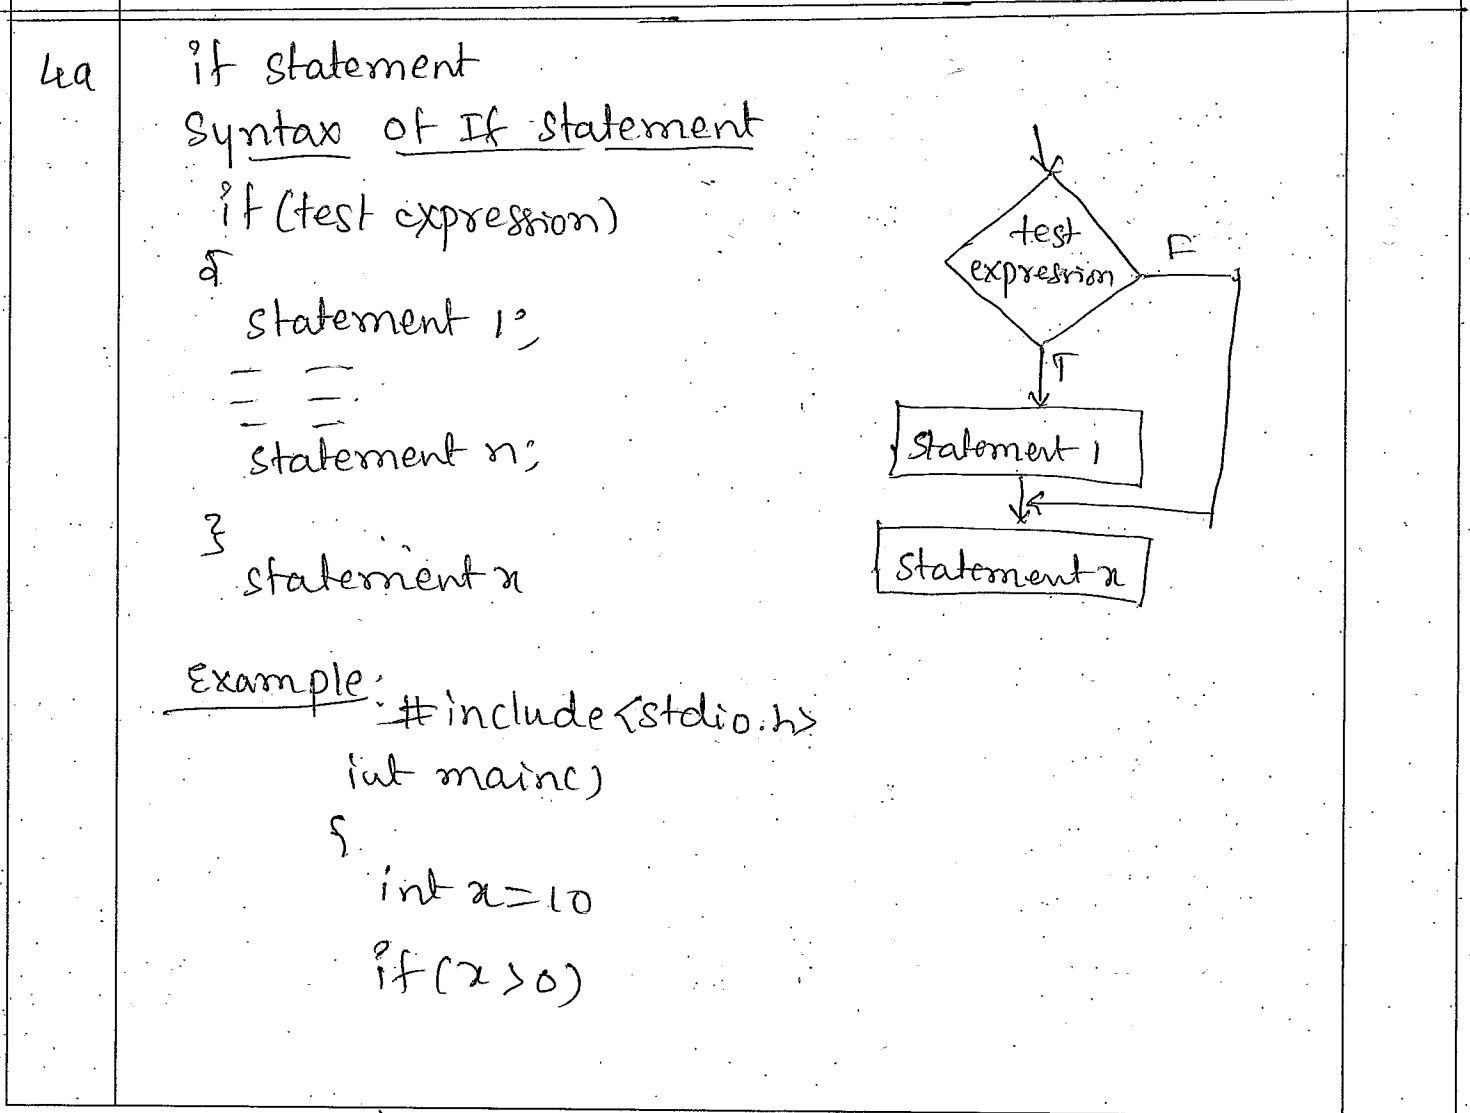 4a
if statement
Syntax of If statement
if (test expression)
{
statement 1;
statement n;
}
statement x
test
expression
F
T
Statement 1
Statement x
Example:
#include<stdio.h>
int main()
{
int x=10
if(x>0)